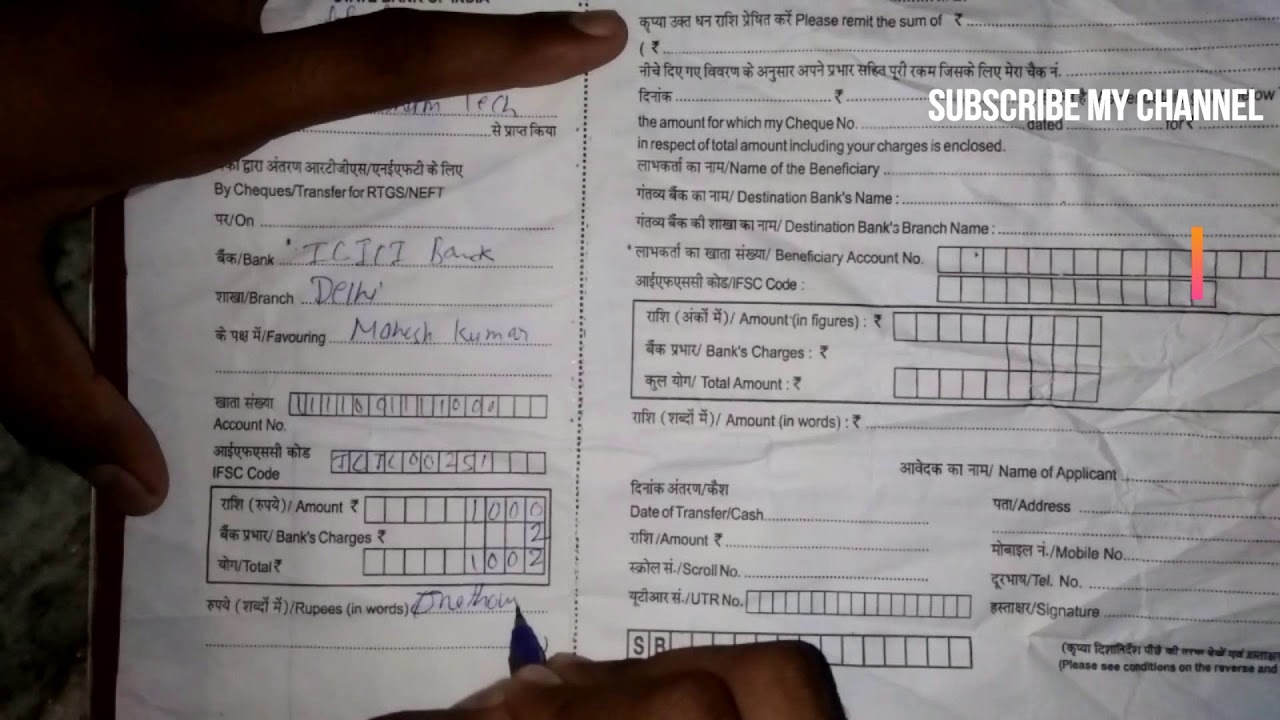 STATE BANK OF INDIA
Tech
से प्राप्त किया
द्वारा अंतरण आरटीजीएस/एनईएफटी के लिए
By Cheques/Transfer for RTGS/NEFT
पर/On
बैंक/Bank ICICI Bank
शाखा/Branch Delhi
के पक्ष में/Favouring Mahesh Kumar
खाता संख्या
Account No.
आईएफएससी कोड
IFSC Code
राशि (रुपये)/ Amount ₹ 1000
बैंक प्रभार/ Bank's Charges ₹ 2
योग/Total ₹ 1002
रुपये (शब्दों में)/Rupees (in words) ( Onethou
)
कृप्या उक्त धन राशि प्रेषित करें Please remit the sum of ₹
( ₹
नीचे दिए गए विवरण के अनुसार अपने प्रभार सहित पूरी रकम जिसके लिए मेरा चैक नं.
दिनांक ₹
SUBSCRIBE MY CHANNEL
the amount for which my Cheque No. dated for ₹
in respect of total amount including your charges is enclosed.
लाभकर्ता का नाम/Name of the Beneficiary
गंतव्य बैंक का नाम/ Destination Bank's Name :
गंतव्य बैंक की शाखा का नाम/ Destination Bank's Branch Name :
लाभकर्ता का खाता संख्या/ Beneficiary Account No.
आईएफएससी कोड/IFSC Code :
राशि (अंकों में)/ Amount (in figures) : ₹
बैंक प्रभार/ Bank's Charges : ₹
कुल योग/ Total Amount : ₹
राशि (शब्दों में)/ Amount (in words) : ₹
आवेदक का नाम/ Name of Applicant
दिनांक अंतरण/कैश
Date of Transfer/Cash
राशि/Amount ₹
स्क्रोल सं./Scroll No.
यूटीआर सं./UTR No.
पता/Address
मोबाइल नं./Mobile No.
दूरभाष/Tel. No.
हस्ताक्षर/Signature
S B
(Please see conditions on the reverse and